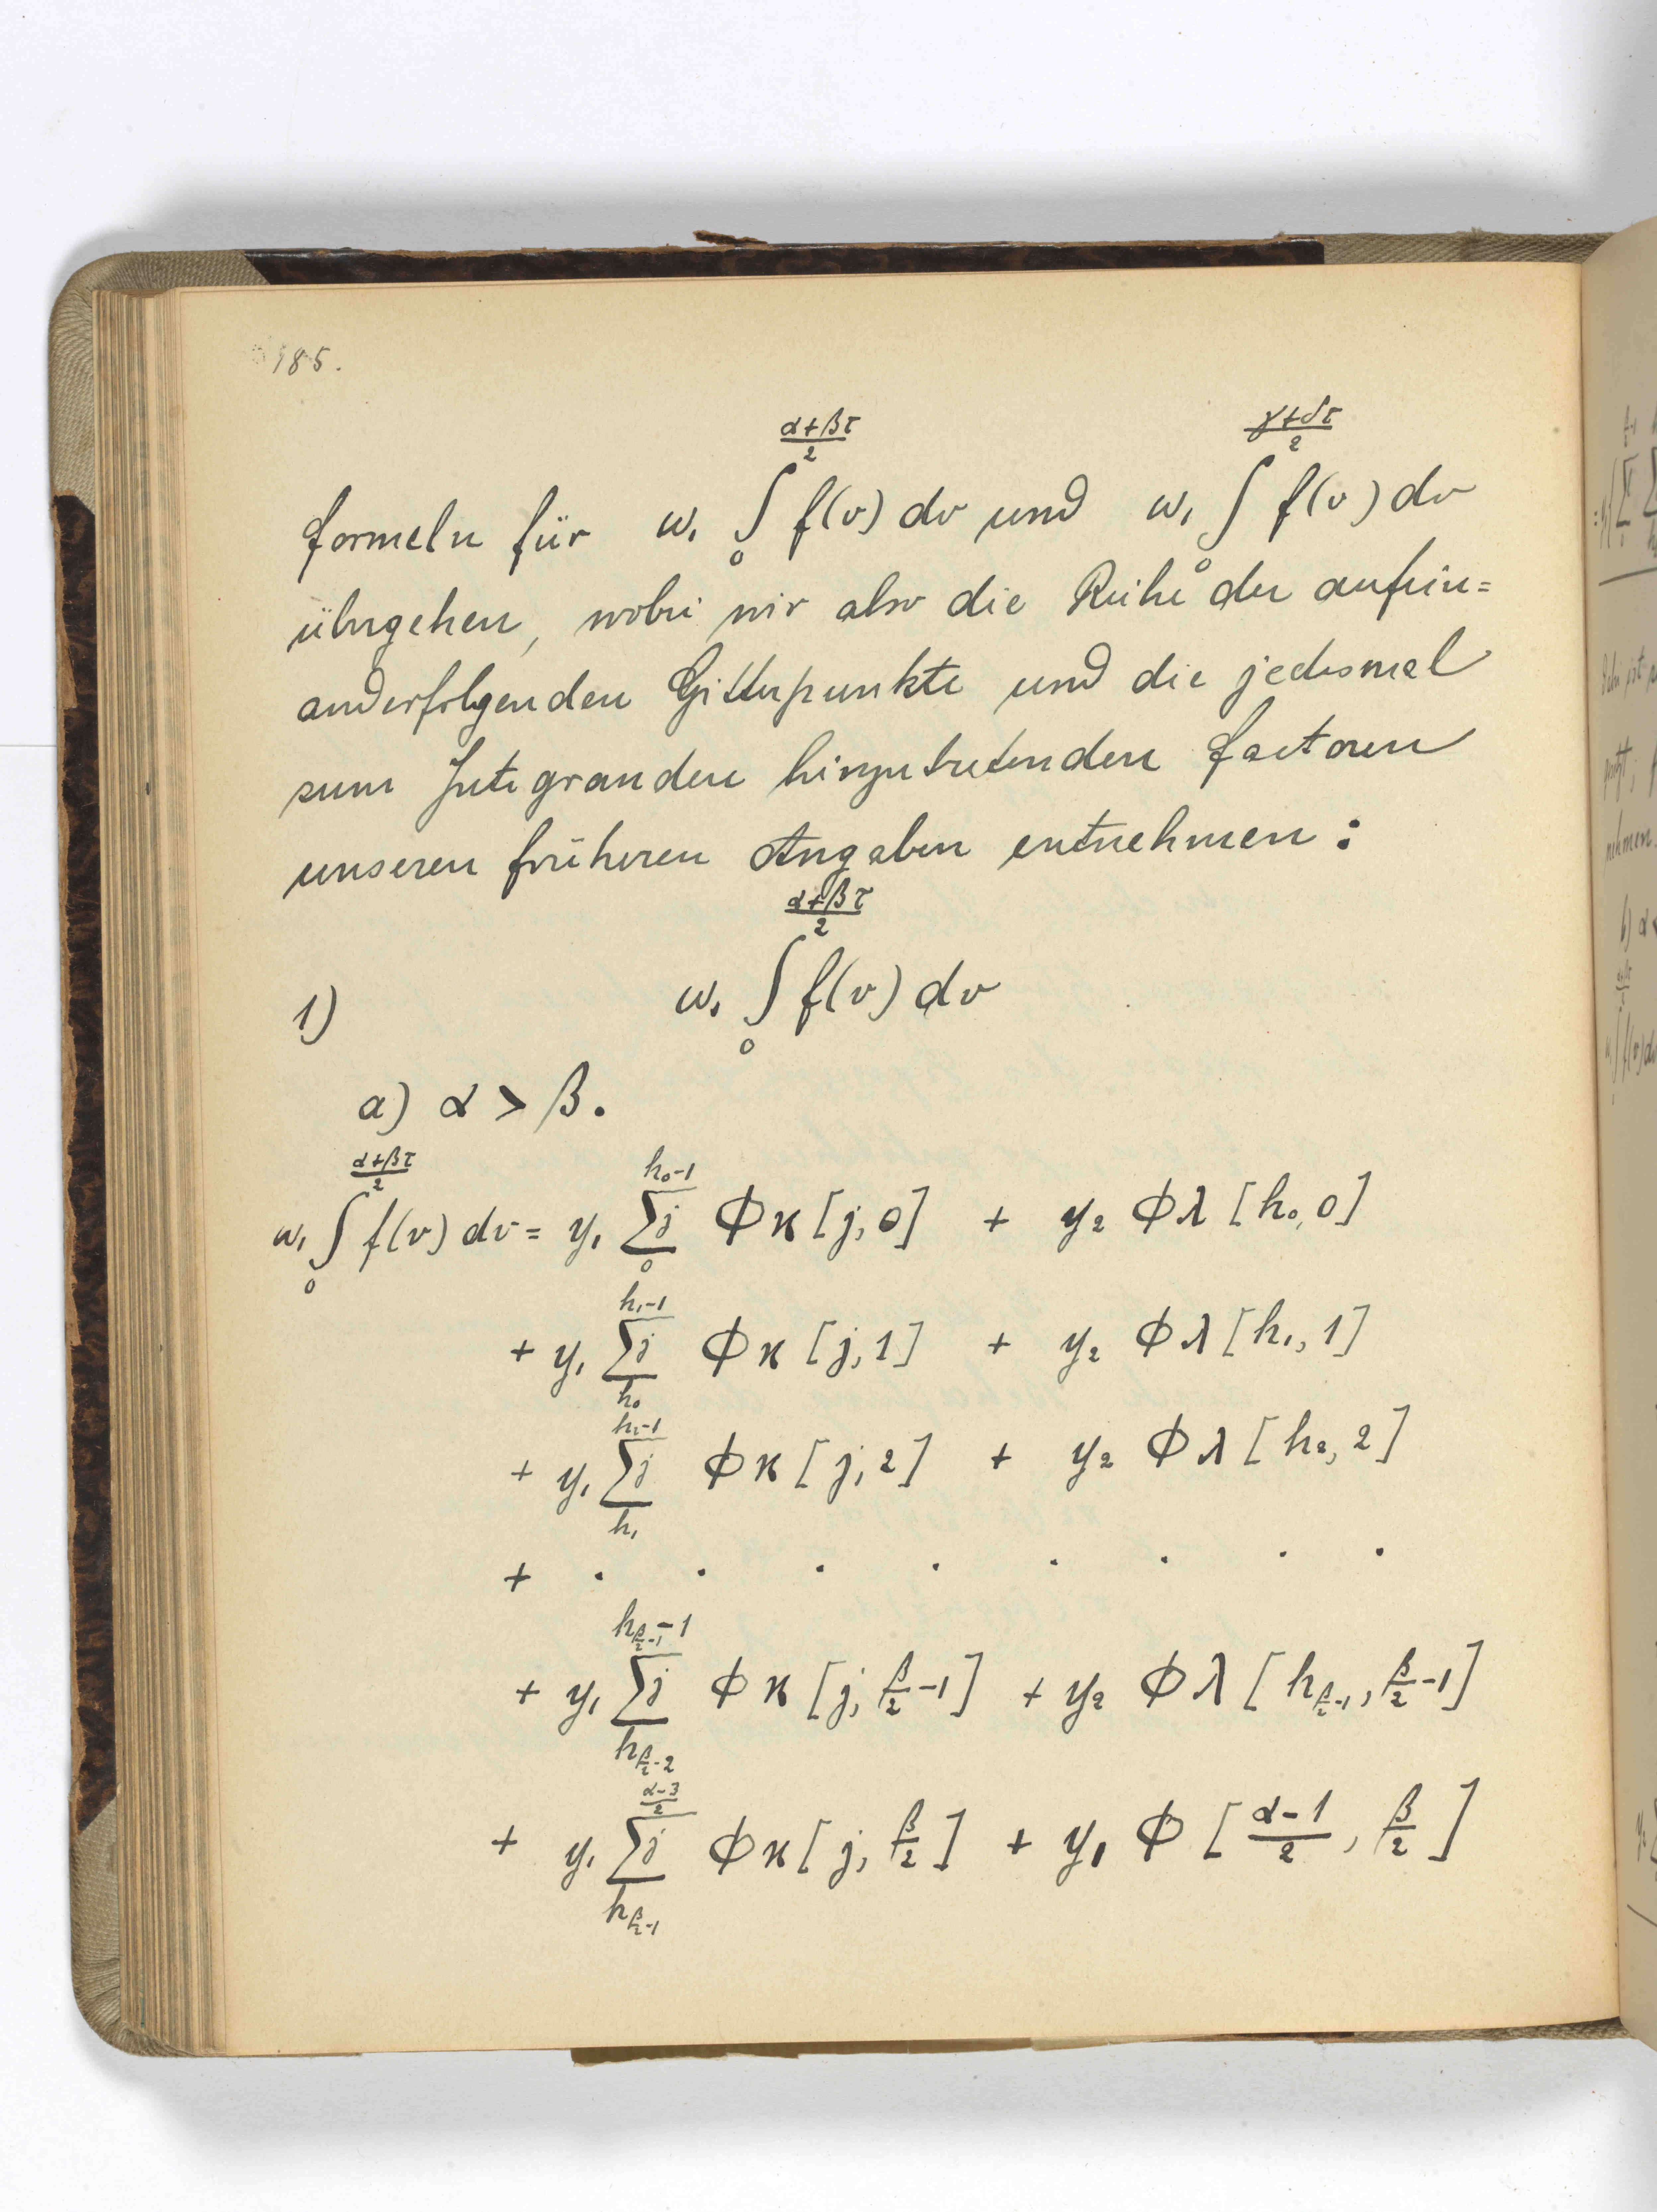 185.
formeln für ω₁ ∫₀^{(α+βτ)/2} f(v) dv und ω₁ ∫₀^{(γ+δτ)/2} f(v) dv
übergehen, wobei wir also die Reihe der aufein=
anderfolgenden Gitterpunkte und die jedesmal
zum Integranden hinzutretenden Factoren
unseren früheren Angaben entnehmen:
1) ω₁ ∫₀^{(α+βτ)/2} f(v) dv
a) α > β.
ω₁ ∫₀^{(α+βτ)/2} f(v) dv = y₁ Σj_{0}^{h₀-1} Φκ [j, 0] + y₂ Φλ [h₀, 0]
+ y₁ Σj_{h₀}^{h₁-1} Φκ [j, 1] + y₂ Φλ [h₁, 1]
+ y₁ Σj_{h₁}^{h₂-1} Φκ [j, 2] + y₂ Φλ [h₂, 2]
+ . . . . . . . .
+ y₁ Σj_{h_{β/2-2}}^{h_{β/2-1}-1} Φκ [j, β/2-1] + y₂ Φλ [h_{β/2-1}, β/2-1]
+ y₁ Σj_{h_{β/2-1}}^{(α-3)/2} Φκ [j, β/2] + y₁ Φ [(α-1)/2, β/2]